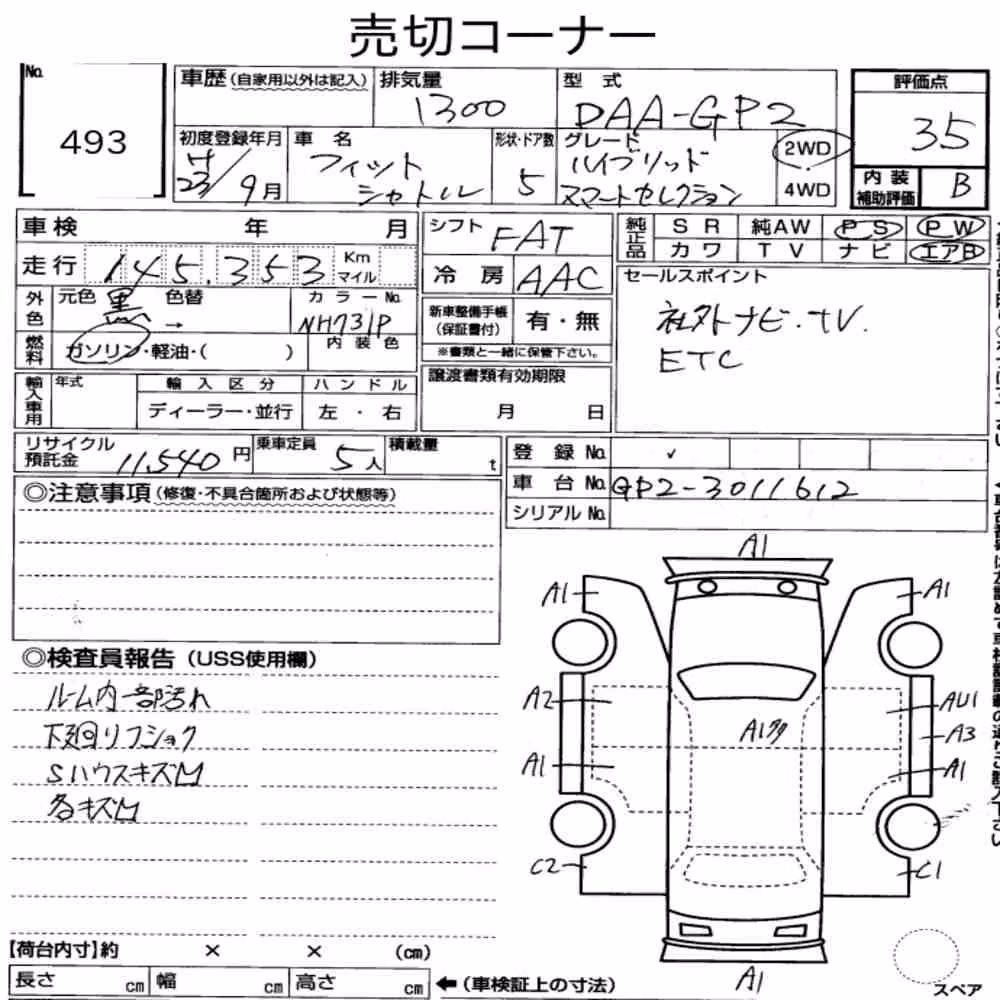 売切コーナー
No.
493
車歴(自家用以外は記入)
排気量
1300
型式
DAA-GP2
評価点
35
初度登録年月
H
23/9月
車名
フィット
シャトル
形状・ドア数
5
グレード
ハイブリッド
スマートセレクション
2WD
4WD
内装
補助評価
B
車検 年 月
走行 145,353 Km
マイル
外色
元色 黒 色替
→
カラーNo.
NH731P
燃料
ガソリン・軽油・( )
内装色
シフト FAT
冷房 AAC
新車整備手帳
(保証書付)
有・無
※書類と一緒に保管下さい。
純正品
SR 純AW PS PW
カワ TV ナビ エアB
セールスポイント
社外ナビ・TV.
ETC
輸入車用
年式
輸入区分
ディーラー・並行
ハンドル
左・右
譲渡書類有効期限
月 日
リサイクル
預託金 11,540円
乗車定員 5人
積載量 t
登録No.
車台No. GP2-3011612
シリアルNo.
◎注意事項(修復・不具合箇所および状態等)
◎検査員報告(USS使用欄)
ルーム内一部汚れ
下廻りフショク
Sハウスキズ凹
各キズ凹
A1
A1
A1
A2
AU1
A1多
A3
A1
A1
C2
C1
A1
スペア
【荷台内寸】約 × × (cm)
長さ cm 幅 cm 高さ cm
←(車検証上の寸法)